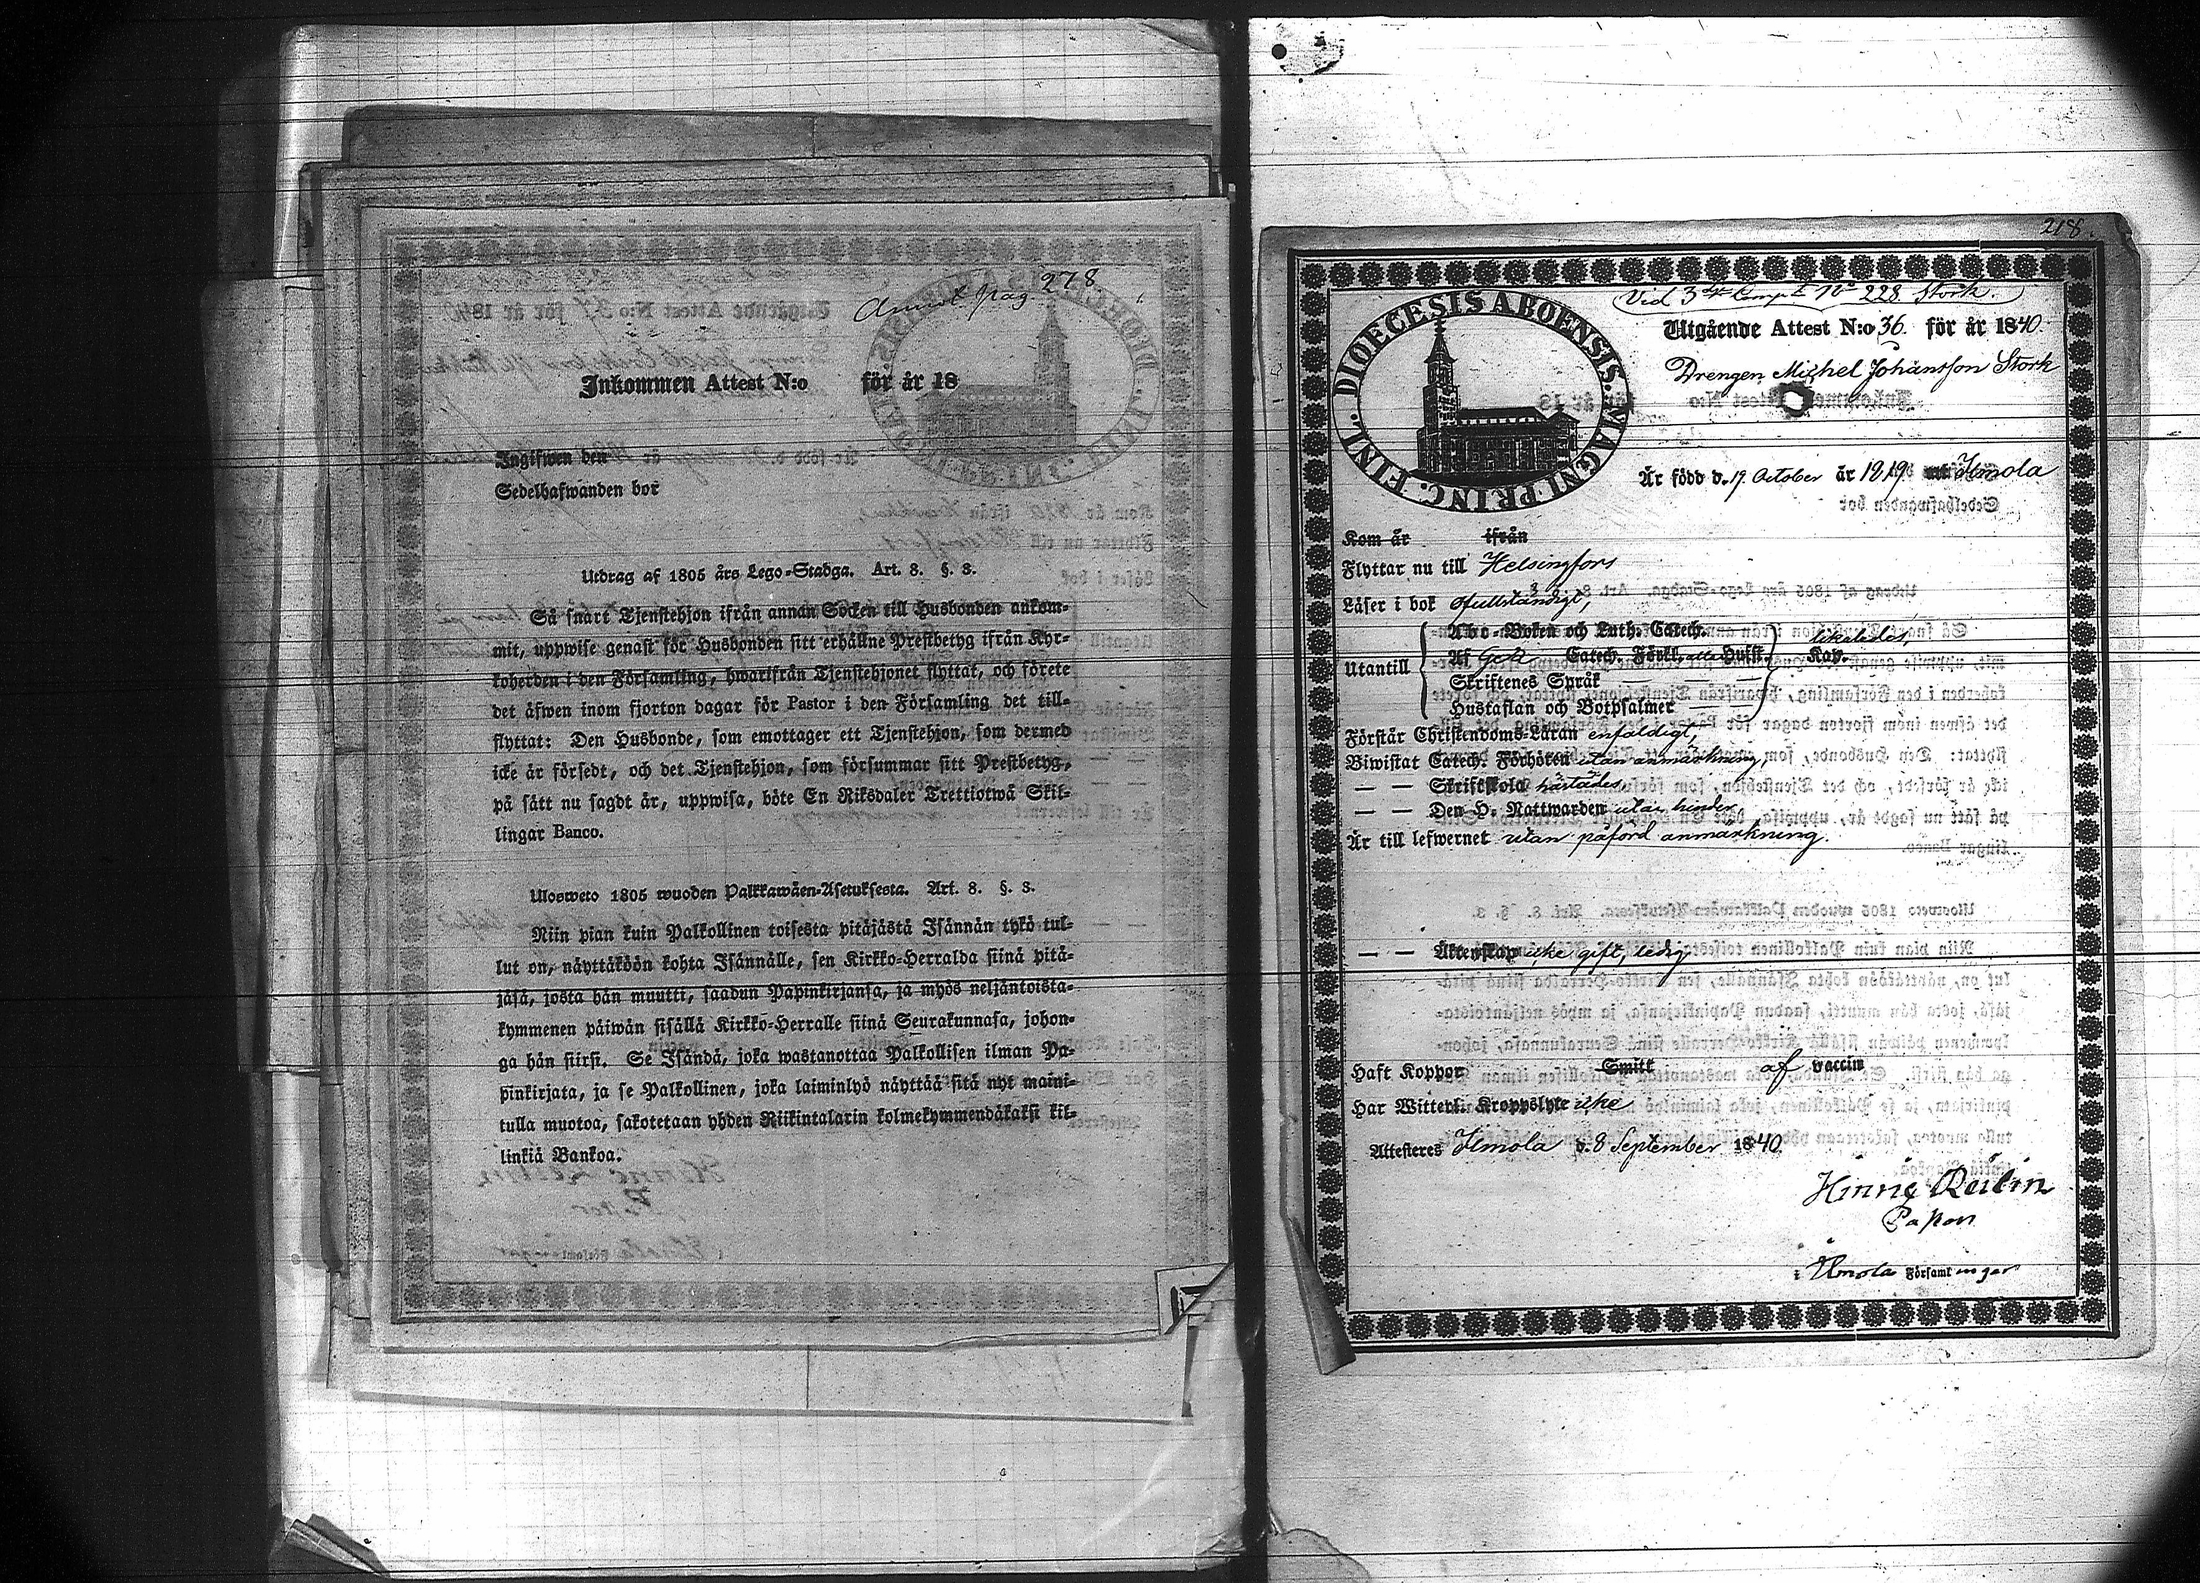 Annot pag. 278
Inkommen Attest N:o för år 18
Ingifwen den
Sedelhafwanden bor
Utdrag af 1805 års Lego-Stadga. Art. 8. §. 3.
Så snart Tjenstehjon ifrån annan Socken till Husbonden ankom-
mit, uppwise genast för Husbonden sitt erhållne Prestbetyg ifrån Kyr-
koherden i den Församling, hwarifrån Tjenstehjonet flyttat, och förete
det äfwen inom fjorton dagar för Pastor i den Församling det till-
flyttat: Den Husbonde, som emottager ett Tjenstehjon, som dermed
icke är försedt, och det Tjenstehjon, som försummar sitt Prestbetyg,
på sätt nu sagdt är, uppwisa, böte En Riksdaler Trettiotwå Skil-
lingar Banco.
Ulosweto 1805 wuoden Palkkawäen-Asetuksesta. Art. 8. §. 3.
Niin pian kuin Palkollinen toisesta pitäjästä Isännän tykö tul-
lut on, näyttäköön kohta Isännälle, sen Kirkko-Herralda siinä pitä-
jäsä, josta hän muutti, saadun Papinkirjansa, ja myös neljäntoista-
kymmenen päiwän sisällä Kirkko-Herralle siinä Seurakunnasa, johon-
ga hän siirsi. Se Isändä, joka wastanottaa Palkollisen ilman Pa-
pinkirjata, ja se Palkollinen, joka laiminlyö näyttää sitä nyt maini-
tulla muotoa, sakotetaan yhden Riikintalarin kolmekymmendäkaksi kil-
linkiä Bankoa.
218.
Vid 3dje Comp. No 228 Stork.
DIOECESIS ABOENSIS. MAGNI PRINC. FINL.
Utgående Attest N:o 36 för år 1840.
Drengen Michel Johansson Stork
Är född d. 19 October år 1819 Ilmola
Kom år ifrån
Flyttar nu till Helsingfors
Läser i bok ofullständigt,
Abc-Boken och Luth. Catech. likaledes,
Utantill Af Catech. Förkl. Hufst. Kap.
Skriftenes Språk
Hustaflan och Botpsalmer
Förstår Christendoms-Läran enfaldigt,
Biwistat Catech. Förhören utan anmärkning,
— — Skriftskola härstädes,
— — Den H. Nattwarden utan hinder,
Är till lefwernet utan påförd anmärkning.
— — Äktenskap icke gift, ledig
Haft Koppor Smitt af vaccin
Har Witterl. Kroppslyte icke
Attesteres Ilmola d. 8 September 1840.
Pastor
i Ilmola Församlingar